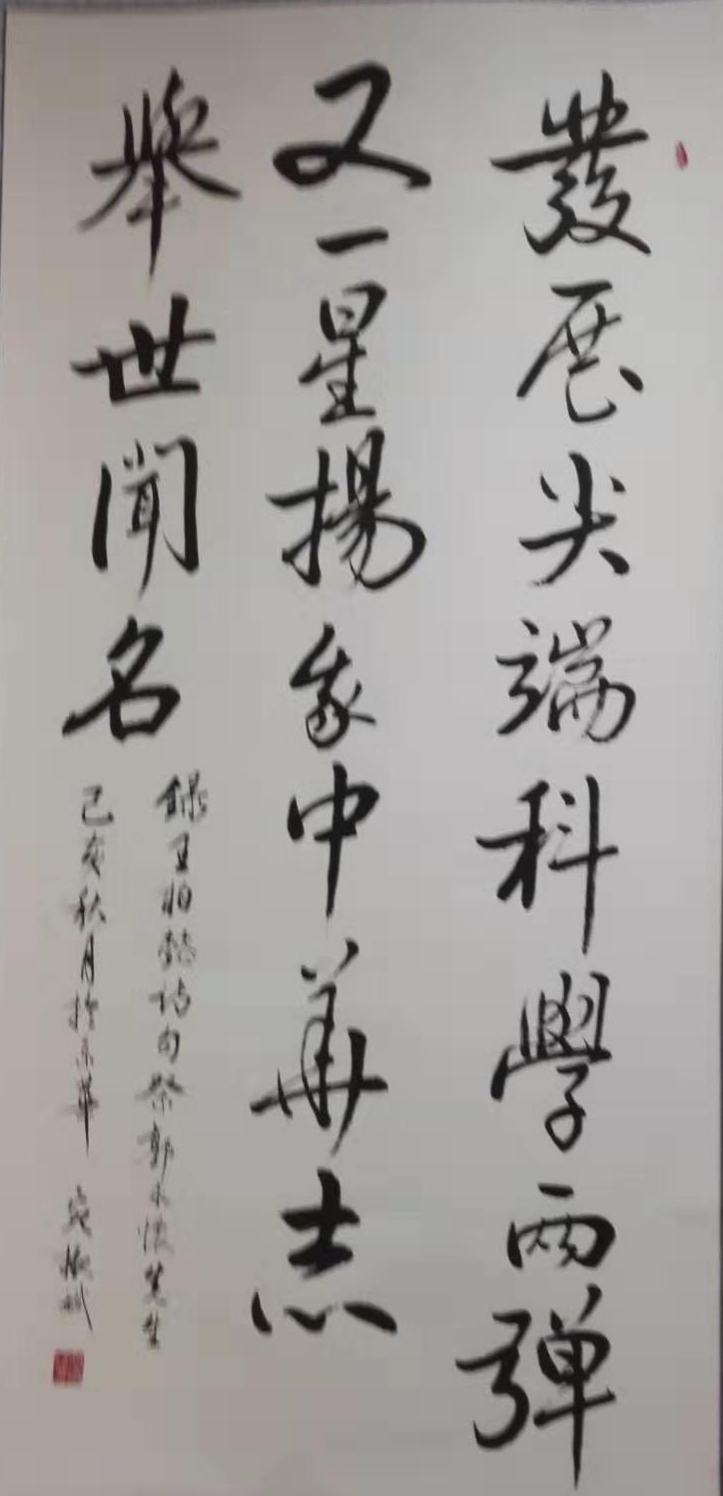 發展尖端科學兩彈
又一星揚我中華志
舉世聞名
錄王伯懿詩句祭郭永懷先生
己亥秋月於京華